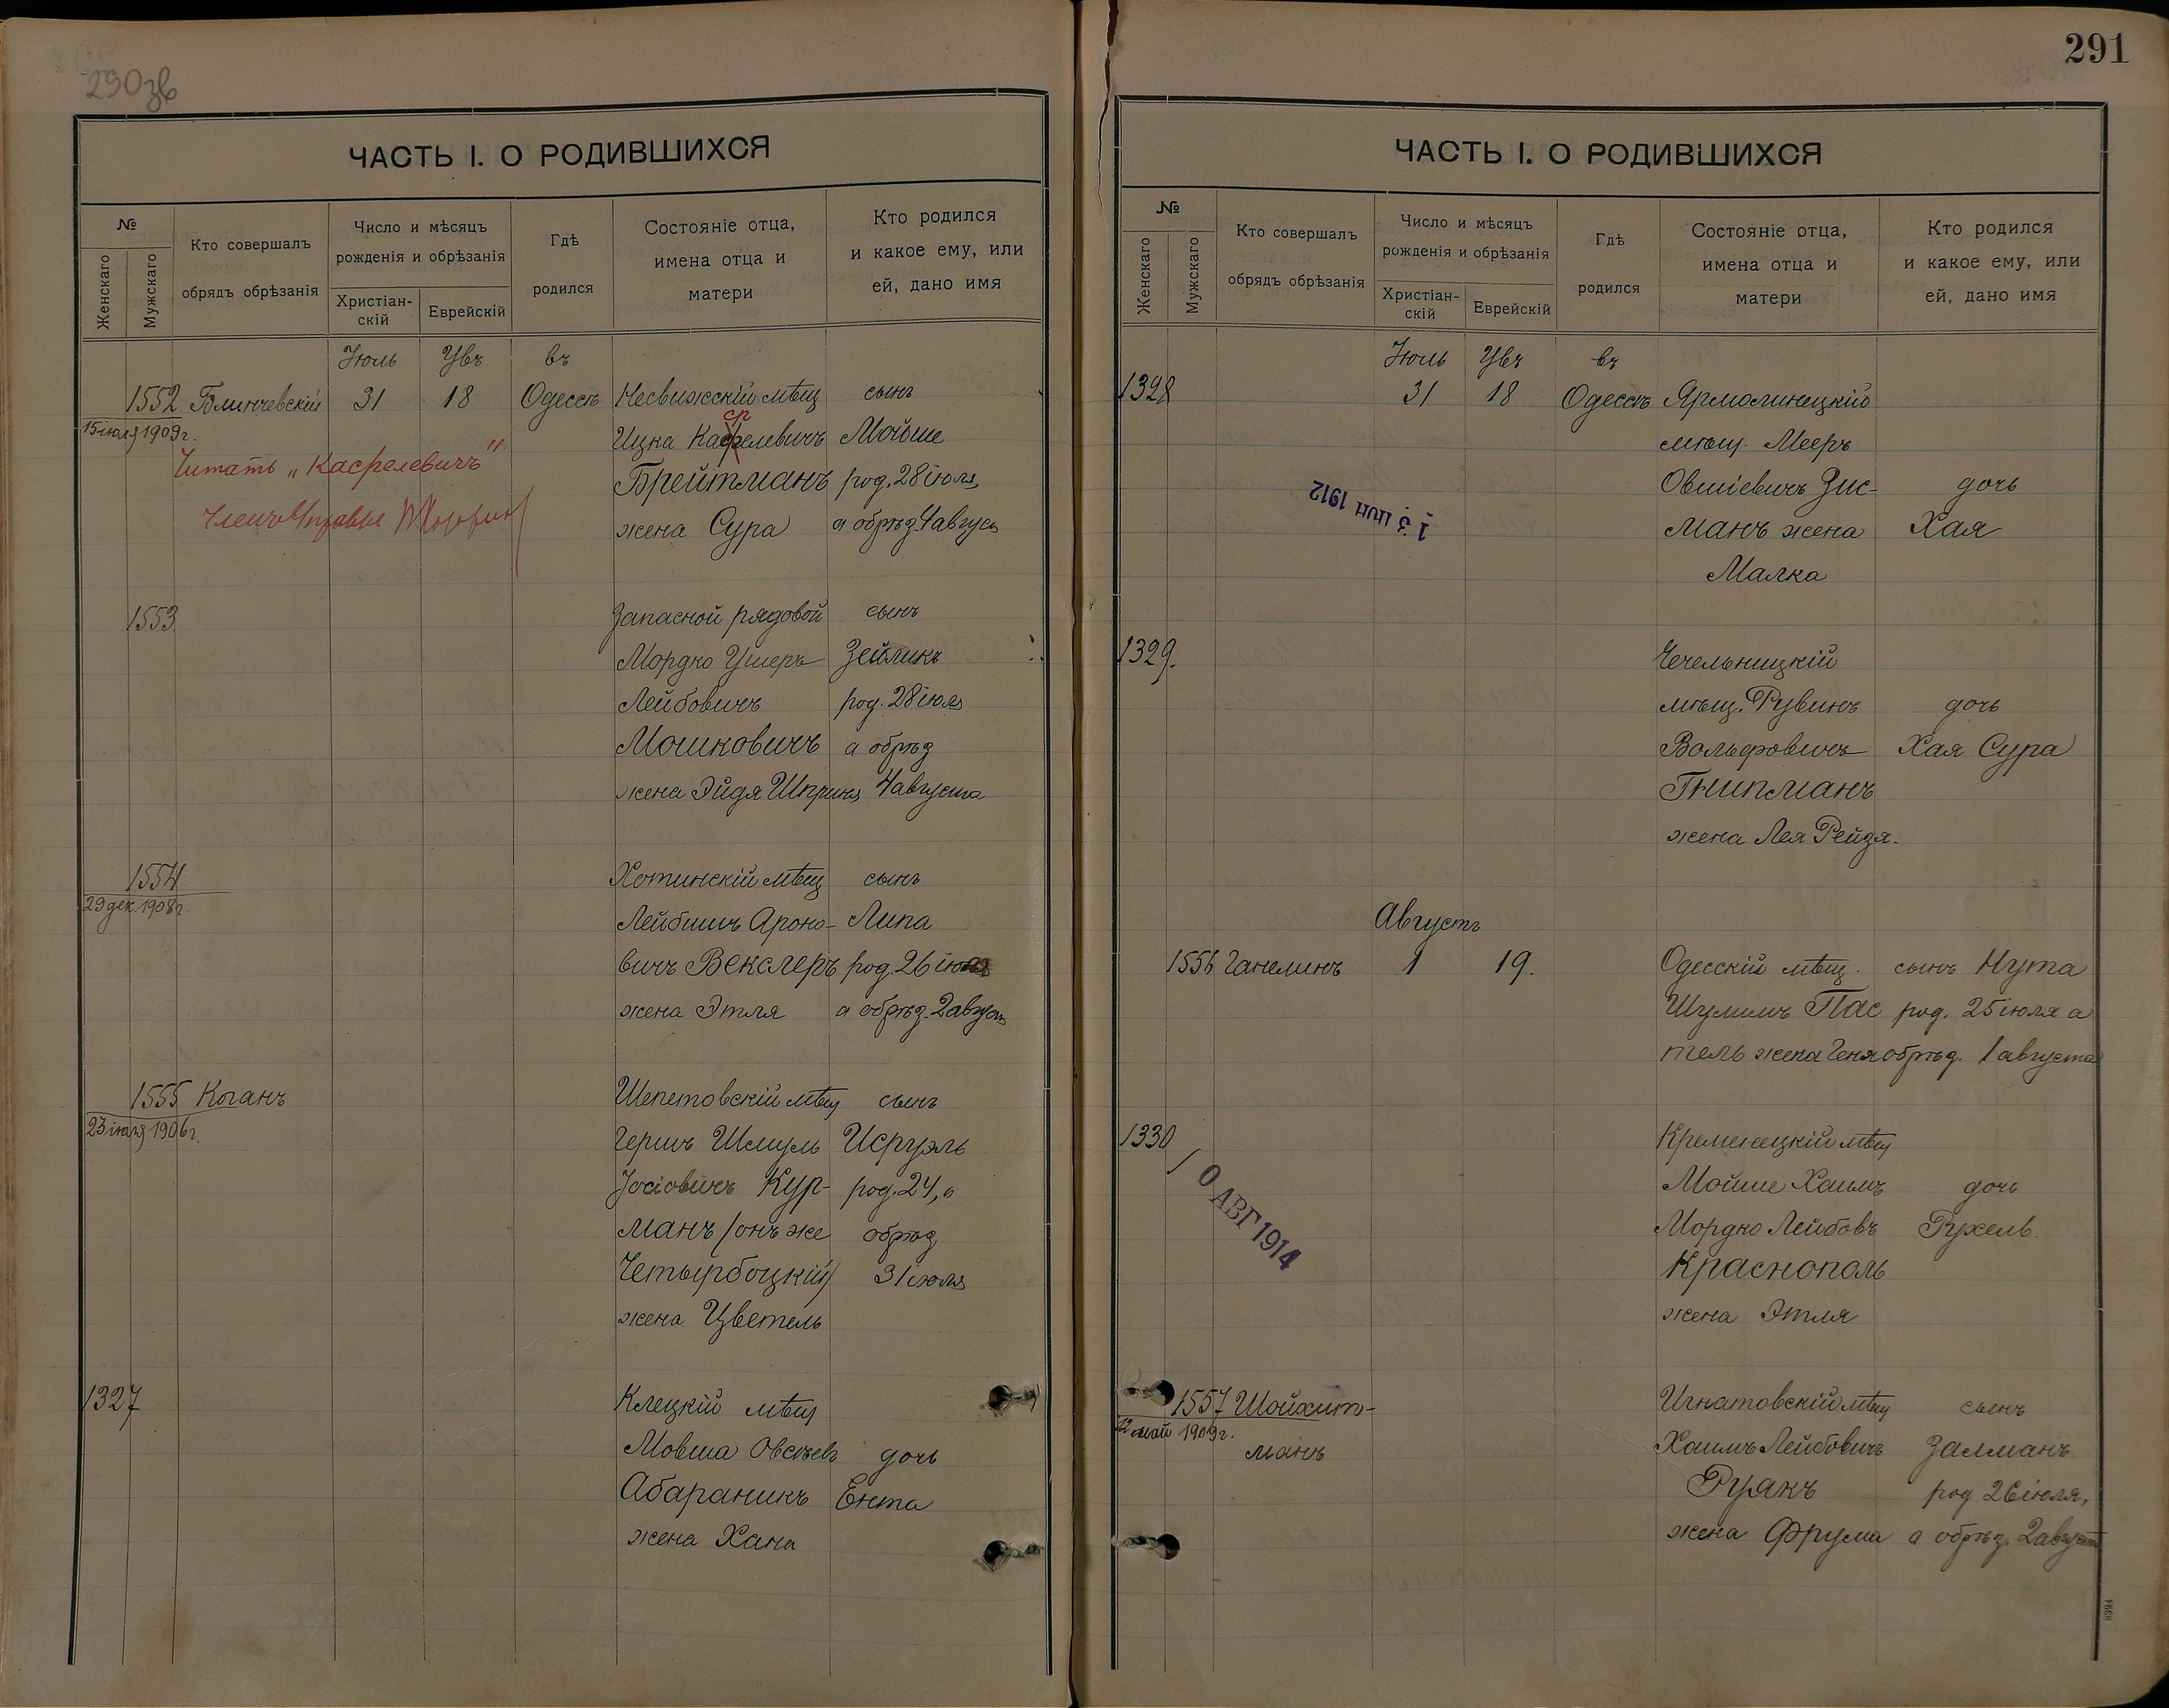 290зв
ЧАСТЬ I. О РОДИВШИХСЯ
№
Женскаго
Мужскаго
Кто совершалъ
обрядъ обрѣзанія
Число и мѣсяцъ
рожденія и обрѣзанія
Христіан-
скій
Еврейскій
Гдѣ
родился
Состояніе отца,
имена отца и
матери
Кто родился
и какое ему, или
ей, дано имя
Іюль Увъ въ
1552 Блинчевскій 31 18 Одессѣ Несвижскій мѣщ сынъ
15 іюля 1909г.
Ицка Касрелевичъ Мойше
Читать „Касрелевичъ"
Брейтманъ род. 28 іюля
Членъ Управы
жена Сура а обрѣз. 4 августа
1553 Запасной рядовой сынъ
Мордко Ушеръ Зейликъ
Лейбовичъ род. 28 іюля
Мошковичъ а обрѣз
жена Эйдя Шпринц 4 августа
1554 Хотинскій мѣщ сынъ
29 дек 1908г.
Лейбишъ Ароно- Липа
вичъ Векслеръ род. 26 іюля
жена Этля а обрѣз. 2 август
1555 Коганъ Шепетовскій мѣщ сынъ
23 1906г.
Гершъ Шмуль Исруэль
Іосіовичъ Кур- род. 24, а
манъ /онъ же обрѣз
Четырбоцкій/ 31 іюля
жена Цветель
1327 Клецкій мѣщ
Мовша Овсѣевъ дочь
Абараникъ Ента
жена Хана
291
ЧАСТЬ I. О РОДИВШИХСЯ
№
Женскаго
Мужскаго
Кто совершалъ
обрядъ обрѣзанія
Число и мѣсяцъ
рожденія и обрѣзанія
Христіан-
скій
Еврейскій
Гдѣ
родился
Состояніе отца,
имена отца и
матери
Кто родился
и какое ему, или
ей, дано имя
Іюль Увъ въ
1328 31 18 Одессѣ Ярмолинецкій
мѣщ. Мееръ
Овшіевичъ Зис- дочь
13 ІЮН 1912
манъ жена Хая
Малка
1329. Чечельницкій
мѣщ. Рувинъ дочь
Вольфовичъ Хая Сура
Гнипманъ
жена Лея Рейзя.
Августъ
1556 Ганелинъ 1 19. Одесскій мѣщ. сынъ Нута
Шулимъ Пас род. 25 іюля а
тель жена Геня обрѣз. 1 августа
1330 Кременецкій мѣщ
10 АВГ 1914
Мойше Хаимъ дочь
Мордко Лейбовъ Рухель.
Краснополь
жена Этля
1557 Шойхит- Игнатовскій мѣщ сынъ
май 1909г.
манъ Хаимъ Лейбовичъ Залманъ
Руакъ род 26 іюля,
жена Фрума а обрѣз. 2 август